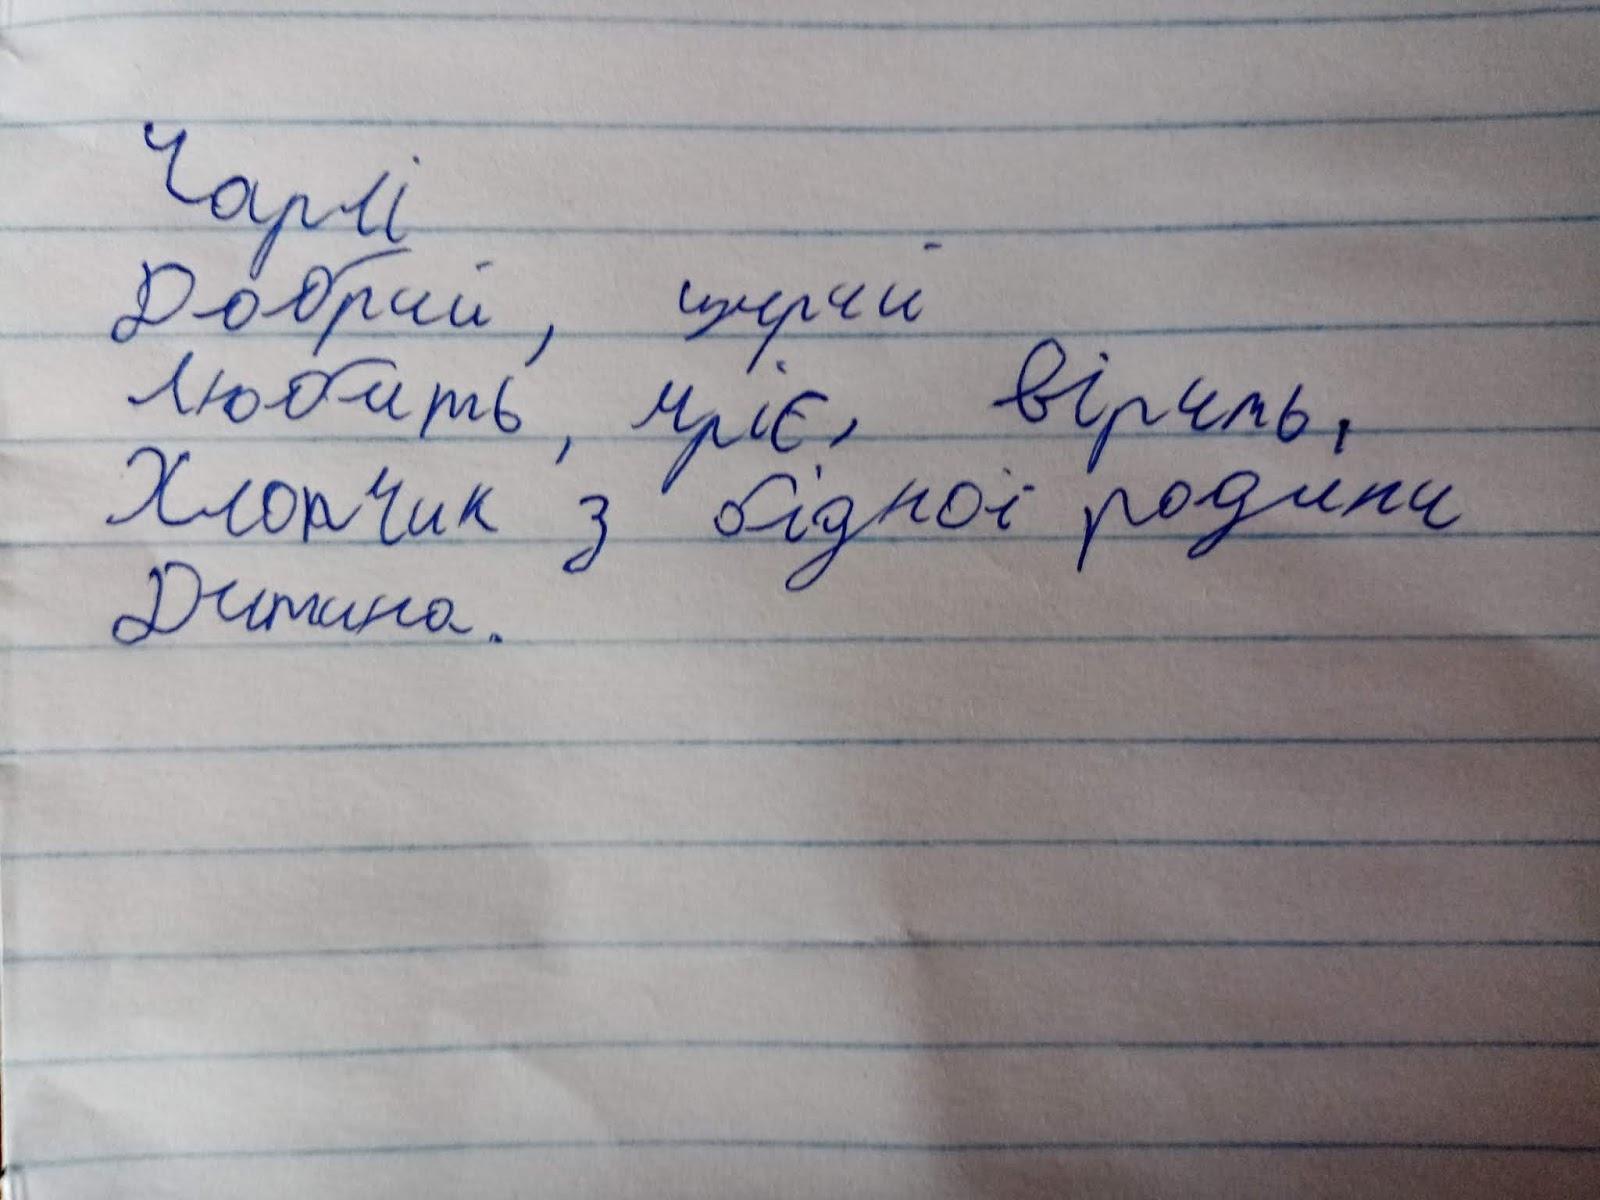 Чарлі
Добрий, щирий
Любить, мріє, вірить,
Хлопчик з бідної родини
Дитина.